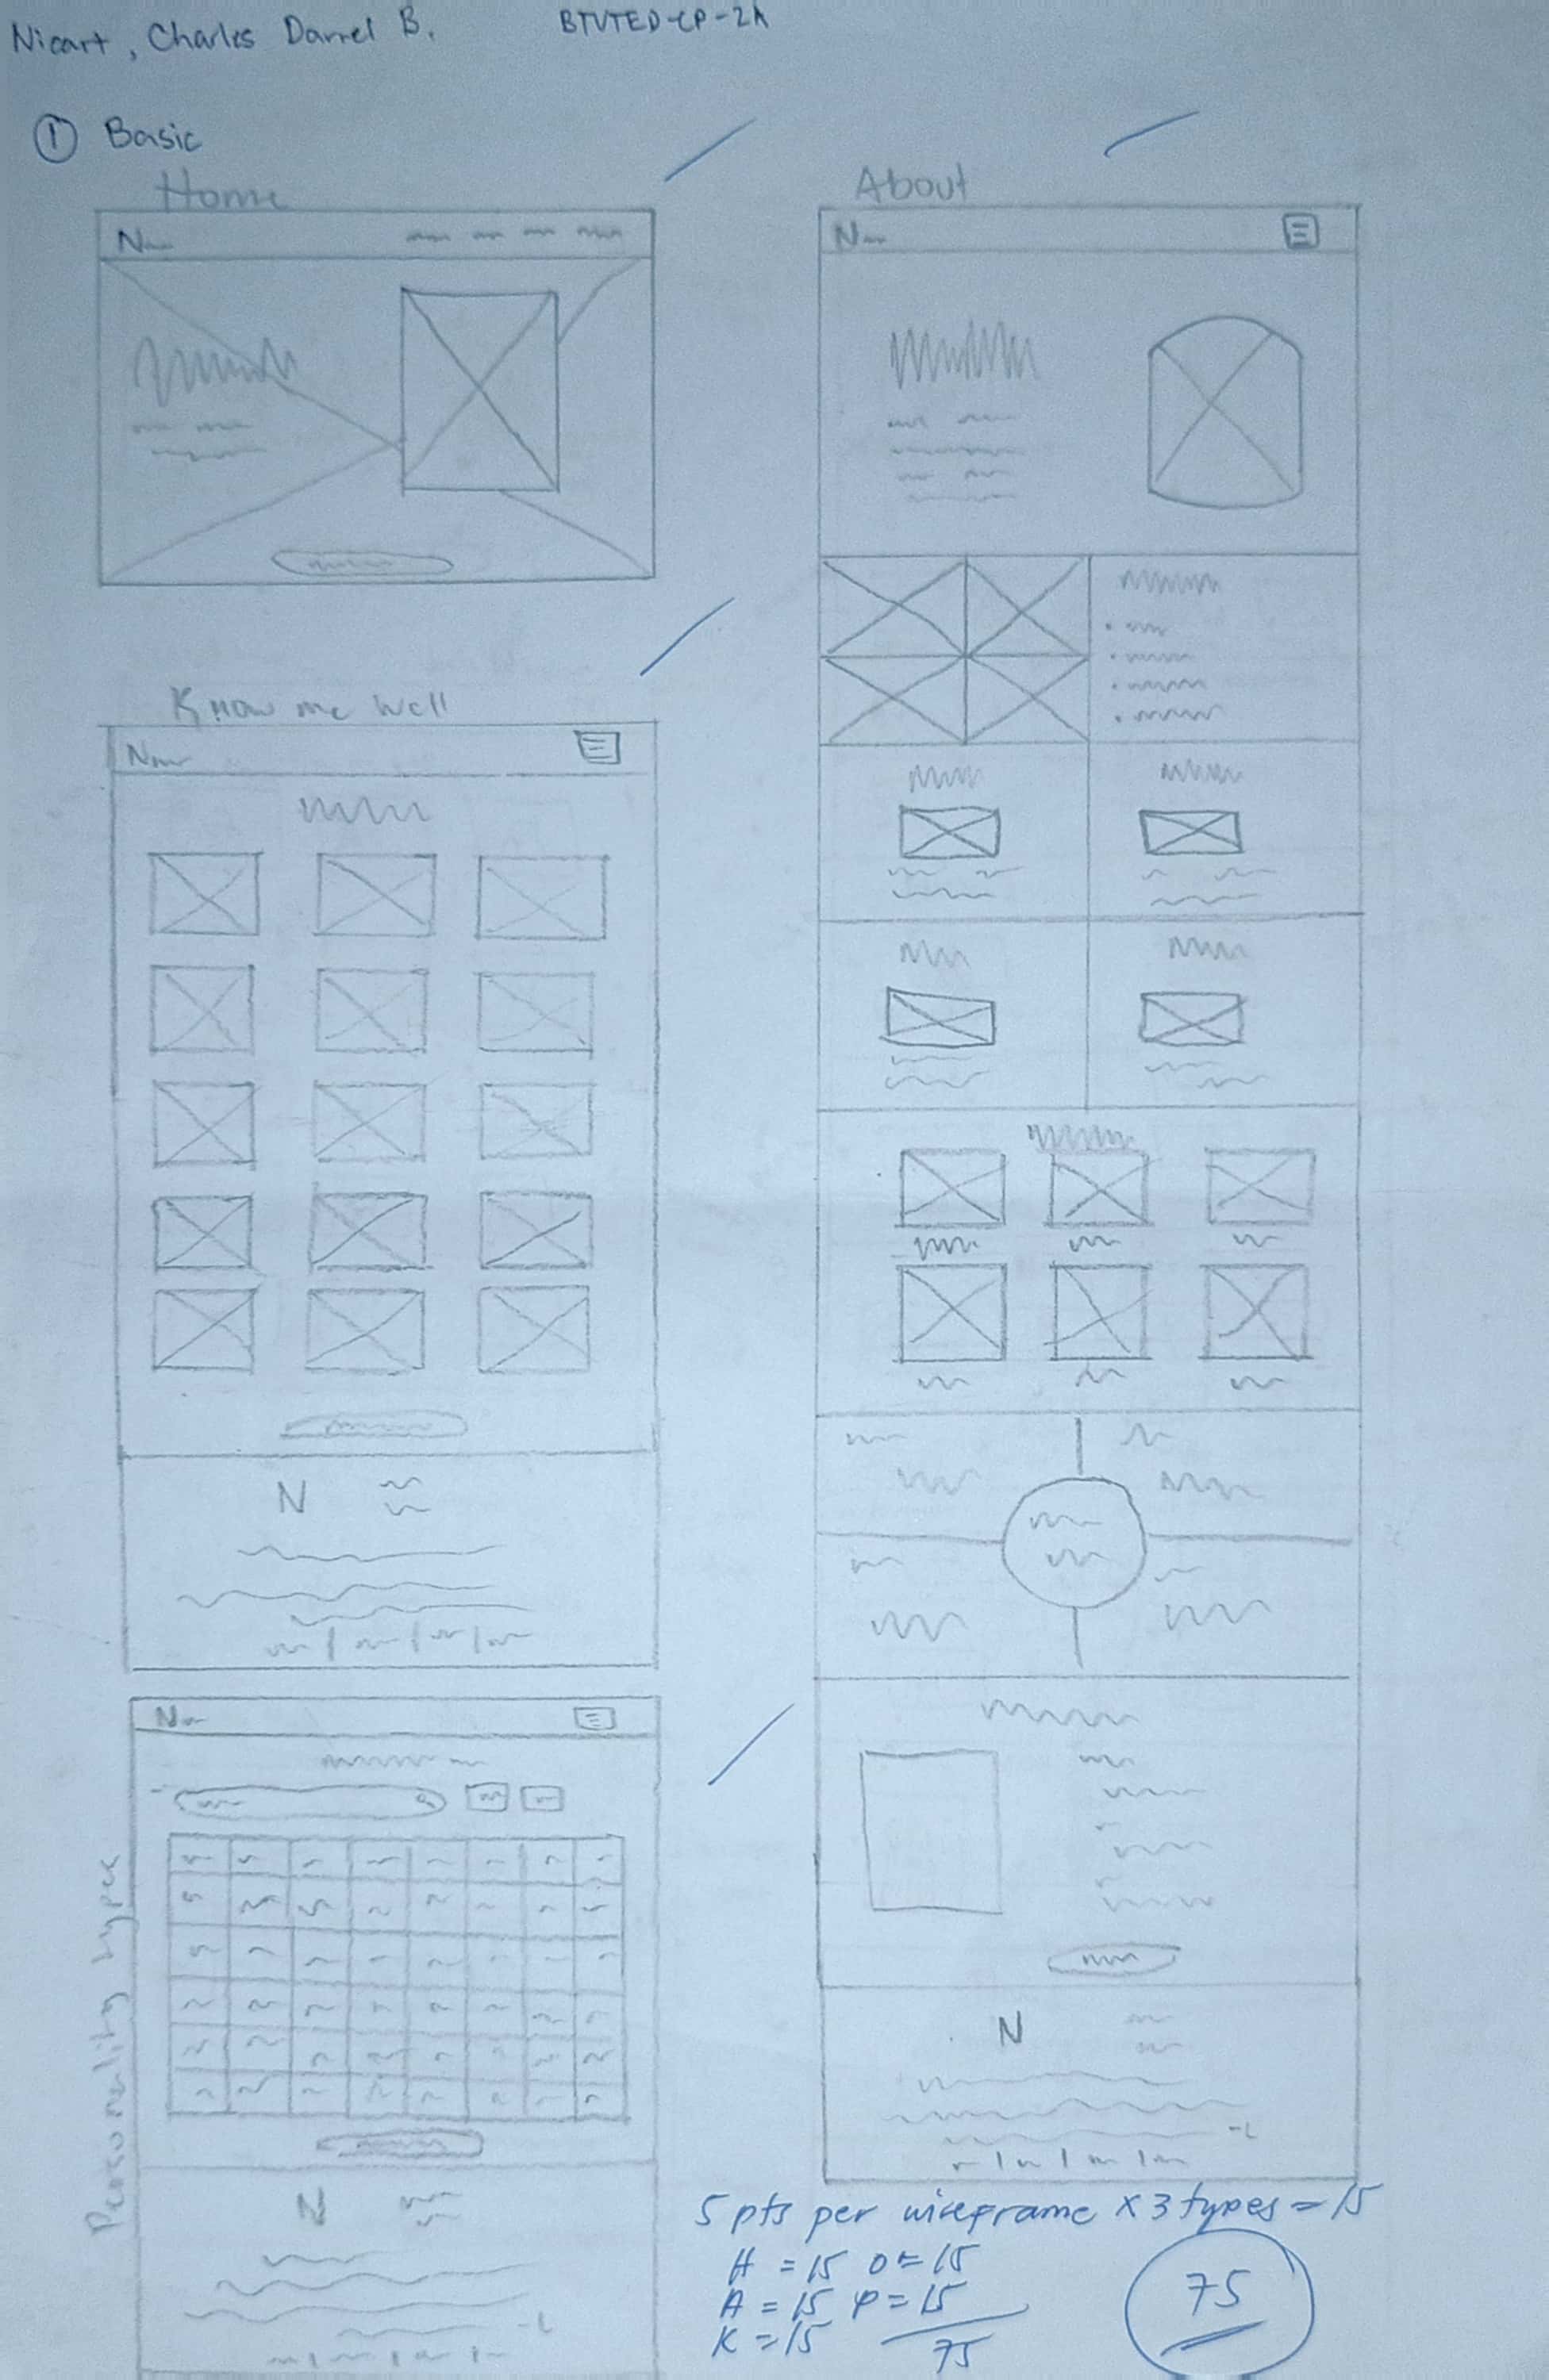 Nicart, Charles Darrel B. BTVTED-CP-2A
① Basic
Home
N
About
N
Know me well
N
N
Personality types
N
N
N
5 pts per wireframe x 3 types = 15
H = 15 O = 15
A = 15 P = 15
K = 15 75
75